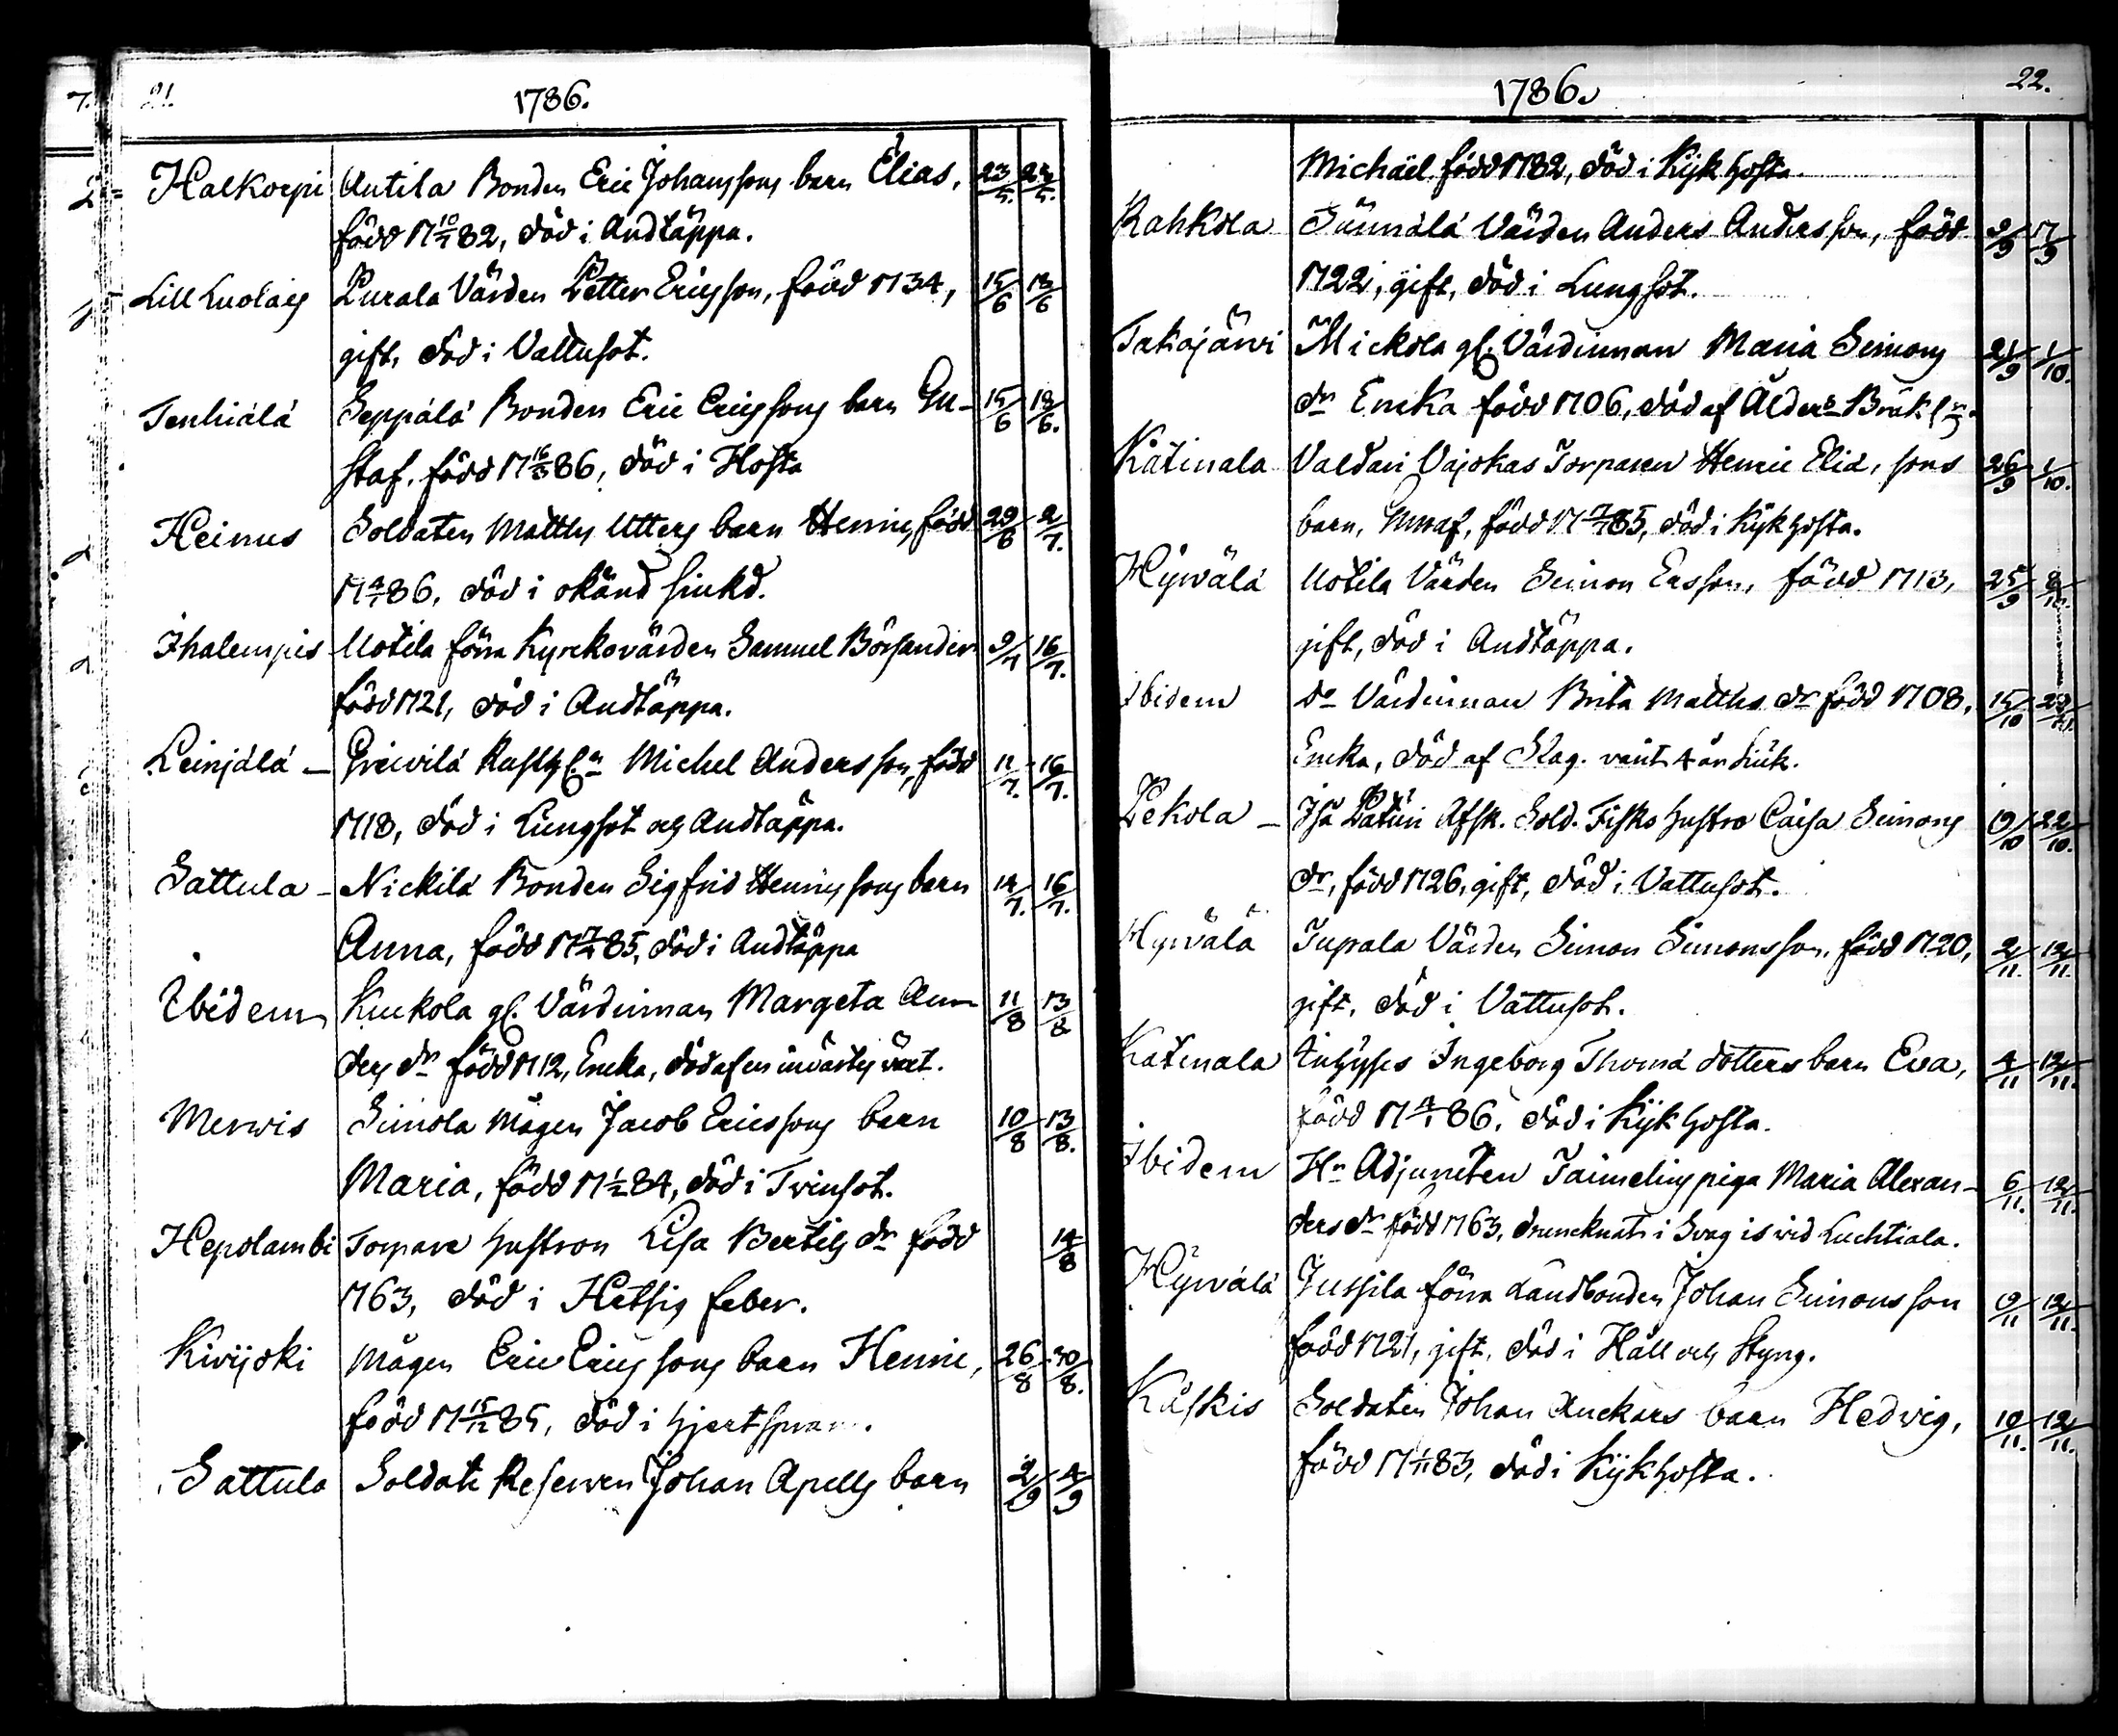 21.
1786.
Halkorpi Antila Bonden Eric Johanssons barn Elias, 23/5. 24/5.
född 17 10/7 82, död i Andtäppa.
Lill Luolais Purala Värden Petter Ericsson, född 1734, 15/6 18/6
gift, död i Vattusot.
Tenhiälä Seppälä Bonden Eric Ericssons barn Gu- 15/6 18/6.
staf. född 17 16/3 86, död i Hosta
Heinus Soldaten Matths Utters barn Henric, född 29/6 2/7.
17 4/1 86, död i okänd siukd.
Ihalempis Uotila förra Kyrckovärden Samuel Börsander 9/7 16/7.
född 1721, död i Andtäppa.
Leinjälä — Greivilä Rusth.n Michel Andersson, född 11/7. 16/7.
1718, död i Lungsot och Andtäppa.
Sattula — Nickilä Bonden Sigfrid Henrichssons barn 14/7. 16/7.
Anna, född 17 85, död i Andtäppa
Ibidem Kuckola gl. Värdinnan Margeta An- 11/8 13/8
ders dr född 1712, Encka, död af en invärtes växt.
Merwis Simola Mågen Jacob Ericssons barn 10/8 13/8.
Maria, född 17 1/2 84, död i Tvinsot.
Hepolambi Torpare hustron Lisa Bertils dr född 14/8
1763, död i Hetsig feber.
Kivijoki Mågen Eric Ericssons barn Henric, 26/8 30/8.
född 17 15/12 85, död i hjertspran.
Sattula Soldate Reserven Johan Apells barn 2/9 4/9
1786. 22.
Michäel född 1782, död i Kijkhosta.
Rahkola Jännälä Värden Anders Andersson, född 9/9 17/9
1722, gift, död i Lungsot.
Takajärvi Mickola gl. Värdinnan Maria Simons 21/9 1/10.
dr Encka född 1706, död af Ålders
Kätinala Valdari Vajokas Torparen Henric Eliæ, sons 26/9 1/10.
barn, född 17 85, död i Kijkhosta.
Hyrvälä Uotila Värden Simon Ersson, född 1713, 25/9 8/10.
gift, död i Andtäppa.
Ibidem do Värdinnan Brita Matths dr född 1708, 15/10
Encka, död af Slag. varit 4 år siuk.
Pekola — Iso Paturi Afsk. Sold. Fisks hustro Caisa Simons 19/10 22/10.
dr, född 1726, gift, död i Vattusot.
Hyrvälä Jupala Värden Simon Simonsson, född 1720, 2/11. 12/11.
gift, död i Vattusot.
Katinala Inhyses Ingeborg Thomä dotters barn Eva, 4/11 12/11.
född 17 4/1 86, död i Kijkhosta.
Ibidem Hr Adjuncten Taimelins piga Maria Alexan- 6/11. 12/11.
ders dr född 1763, druncknat i Svag is vid Luchtiala.
Hyrvälä Jussila förra Landbonden Johan Simonsson 9/11 12/11.
född 1721, gift, död i Håll och Styng.
Käskis Soldaten Johan Anckars barn Hedvig, 10/11. 12/11.
född 17 1/11 83, död i Kijkhosta.